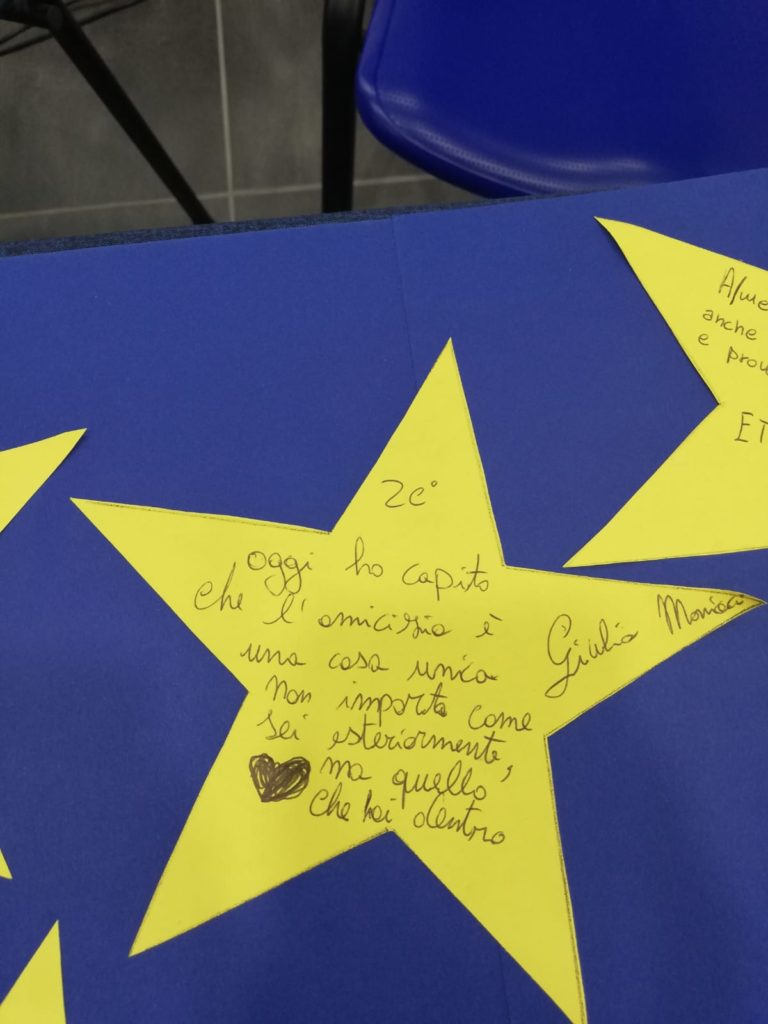 2c°
oggi ho capito
che l'amicizia è
una cosa unica
non importa come
sei esteriormente,
ma quello
che hai dentro
Giulia
anche
e
ET